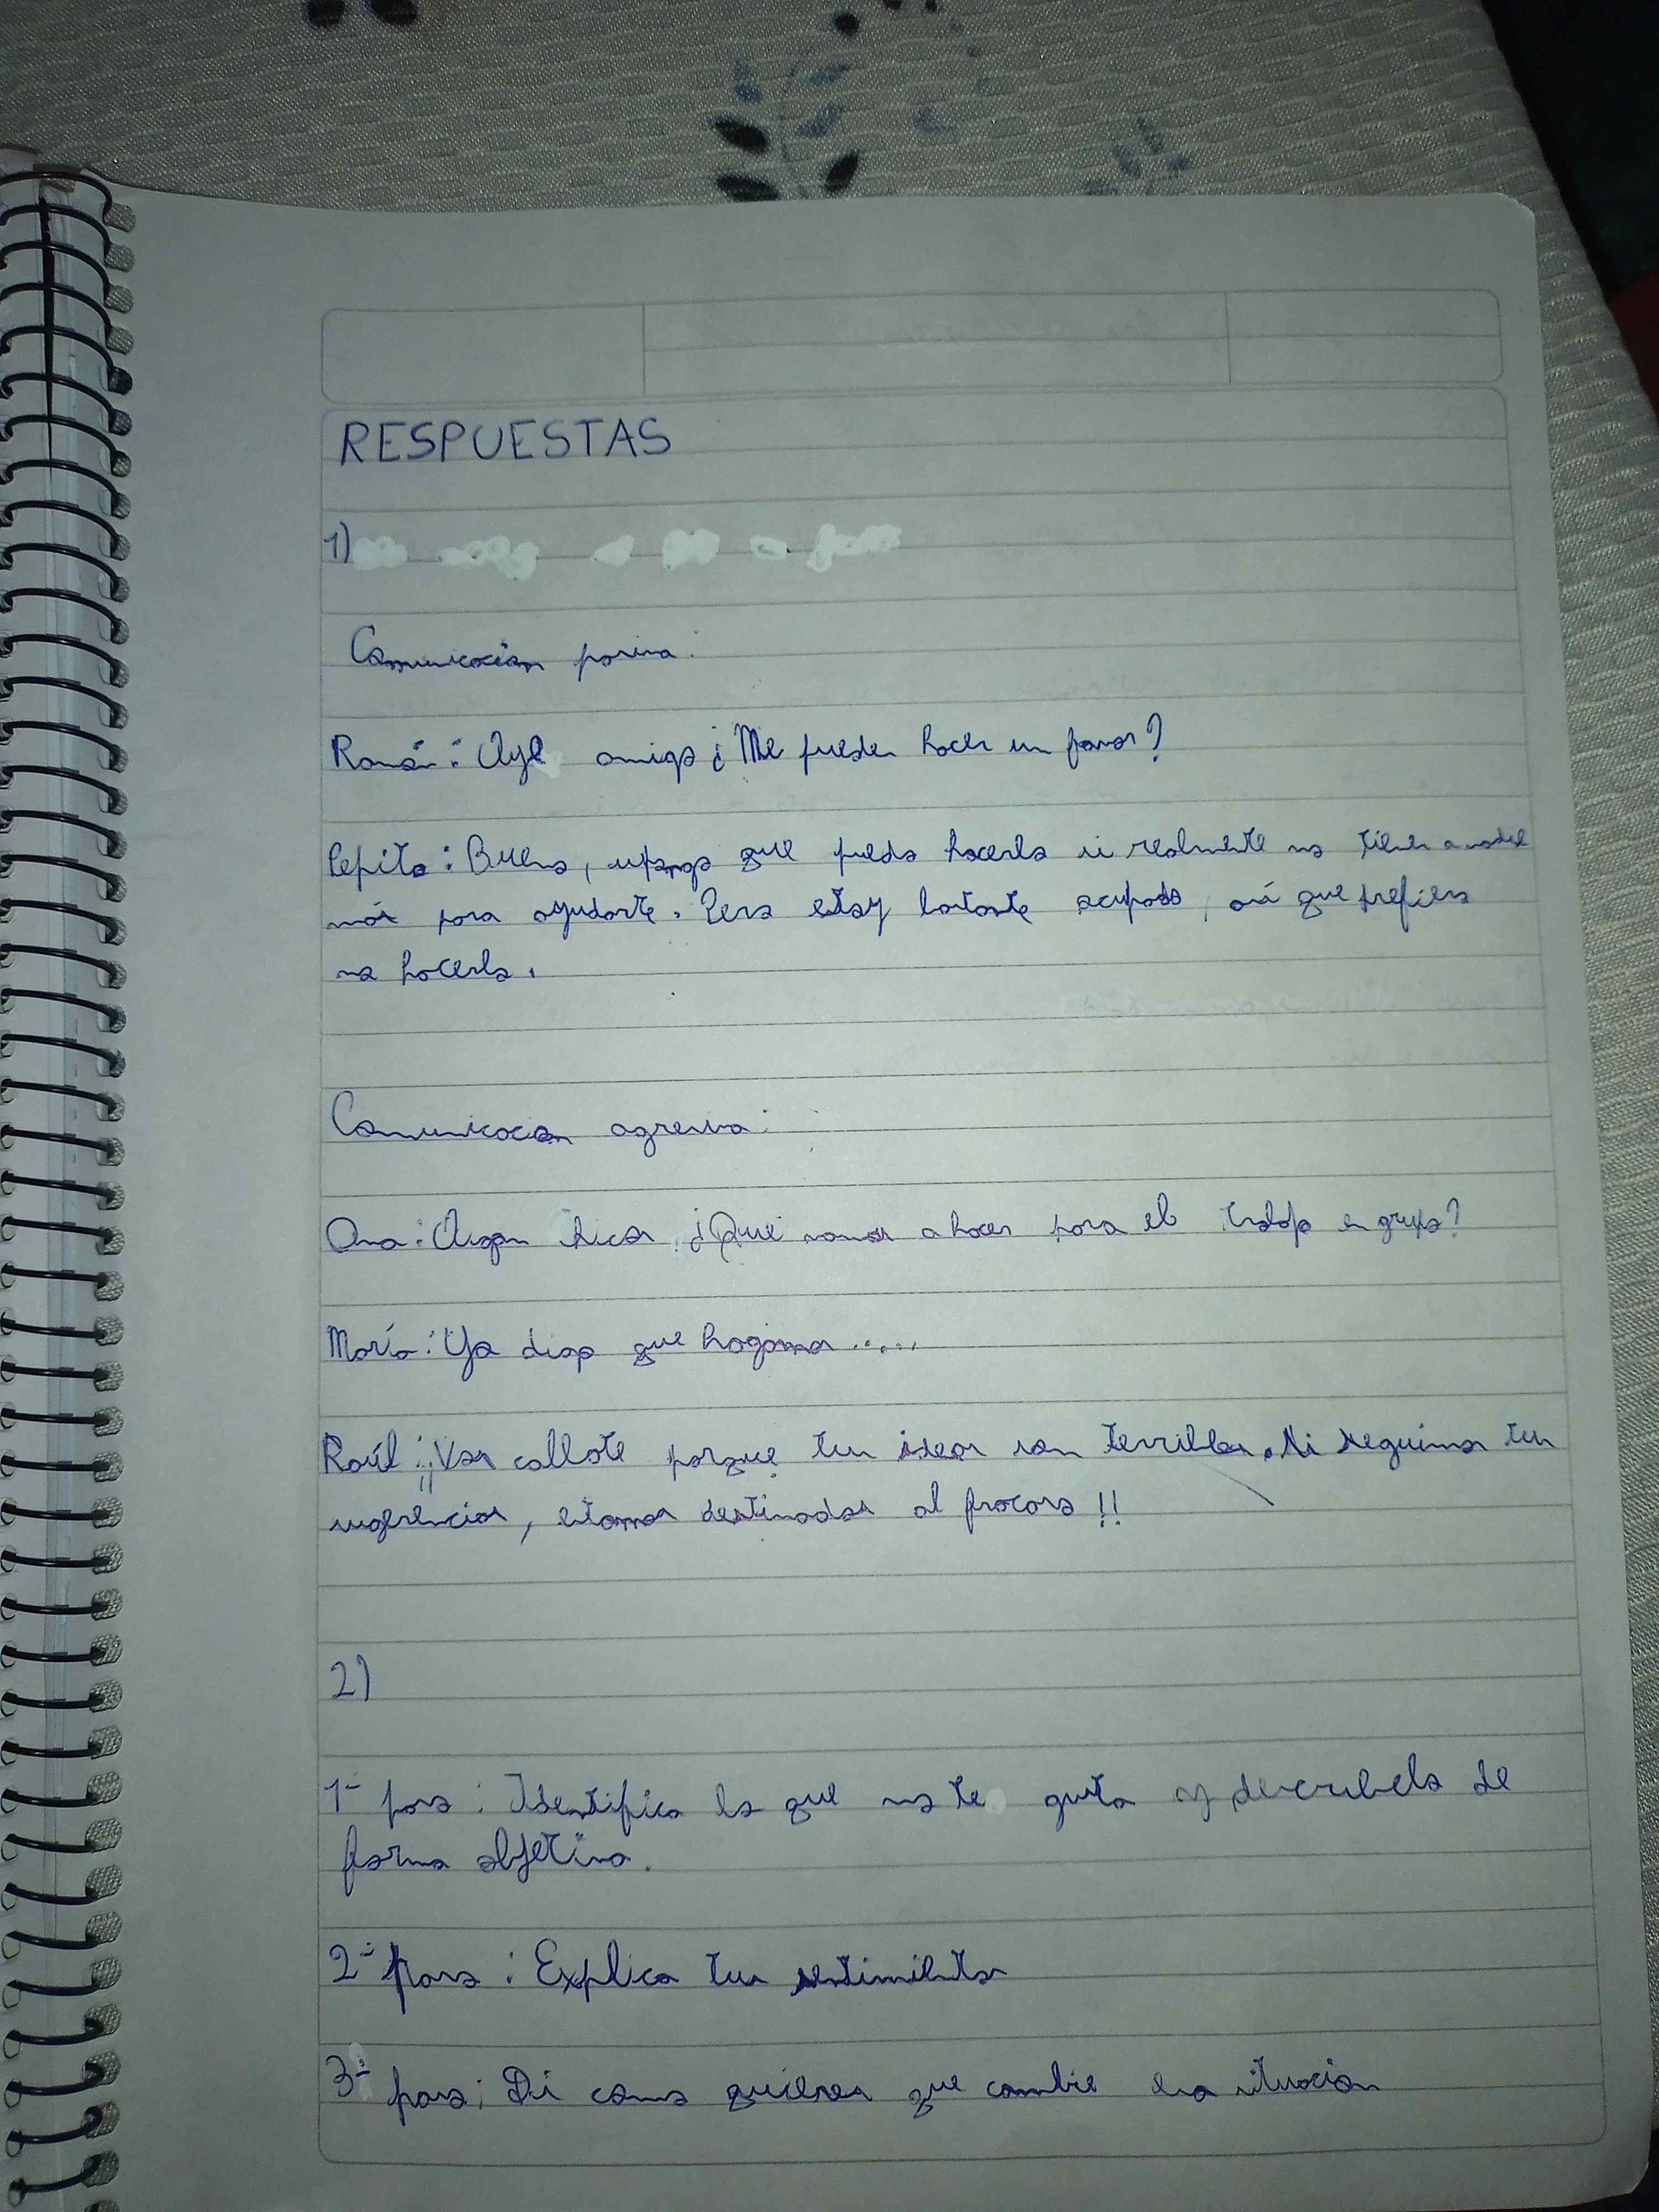 RESPUESTAS
1)
Comunicación pasiva:
Román: Oye amigo ¿Me puedes hacer un favor?
Pepito: Bueno, supongo que puedo hacerlo si realmente no tienes a nadie
más para ayudarte. Pero estoy bastante ocupado, así que prefiero
no hacerlo.
Comunicacion agresiva:
Ana: Oigan chicos ¿Qué vamos a hacer para el trabajo en grupo?
María: Yo digo que hagamos .....
Raúl: ¡¡Vos callate porque tus ideas son terribles. Si seguimos tus
sugerencias, estamos destinados al fracaso!!
2)
1- paso: Identifica lo que no te gusta y describelo de
forma objetiva.
2- paso: Explica tus sentimientos
3- paso: Di como quieres que cambie esa situación